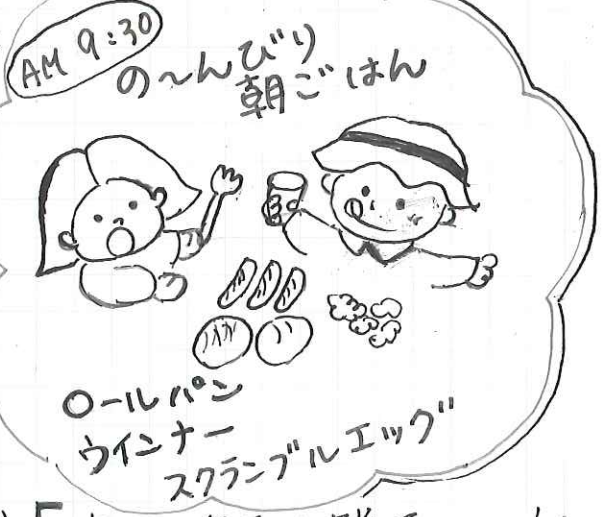 AM 9:30
の〜んびり
朝ごはん
ロールパン
ウインナー
スクランブルエッグ